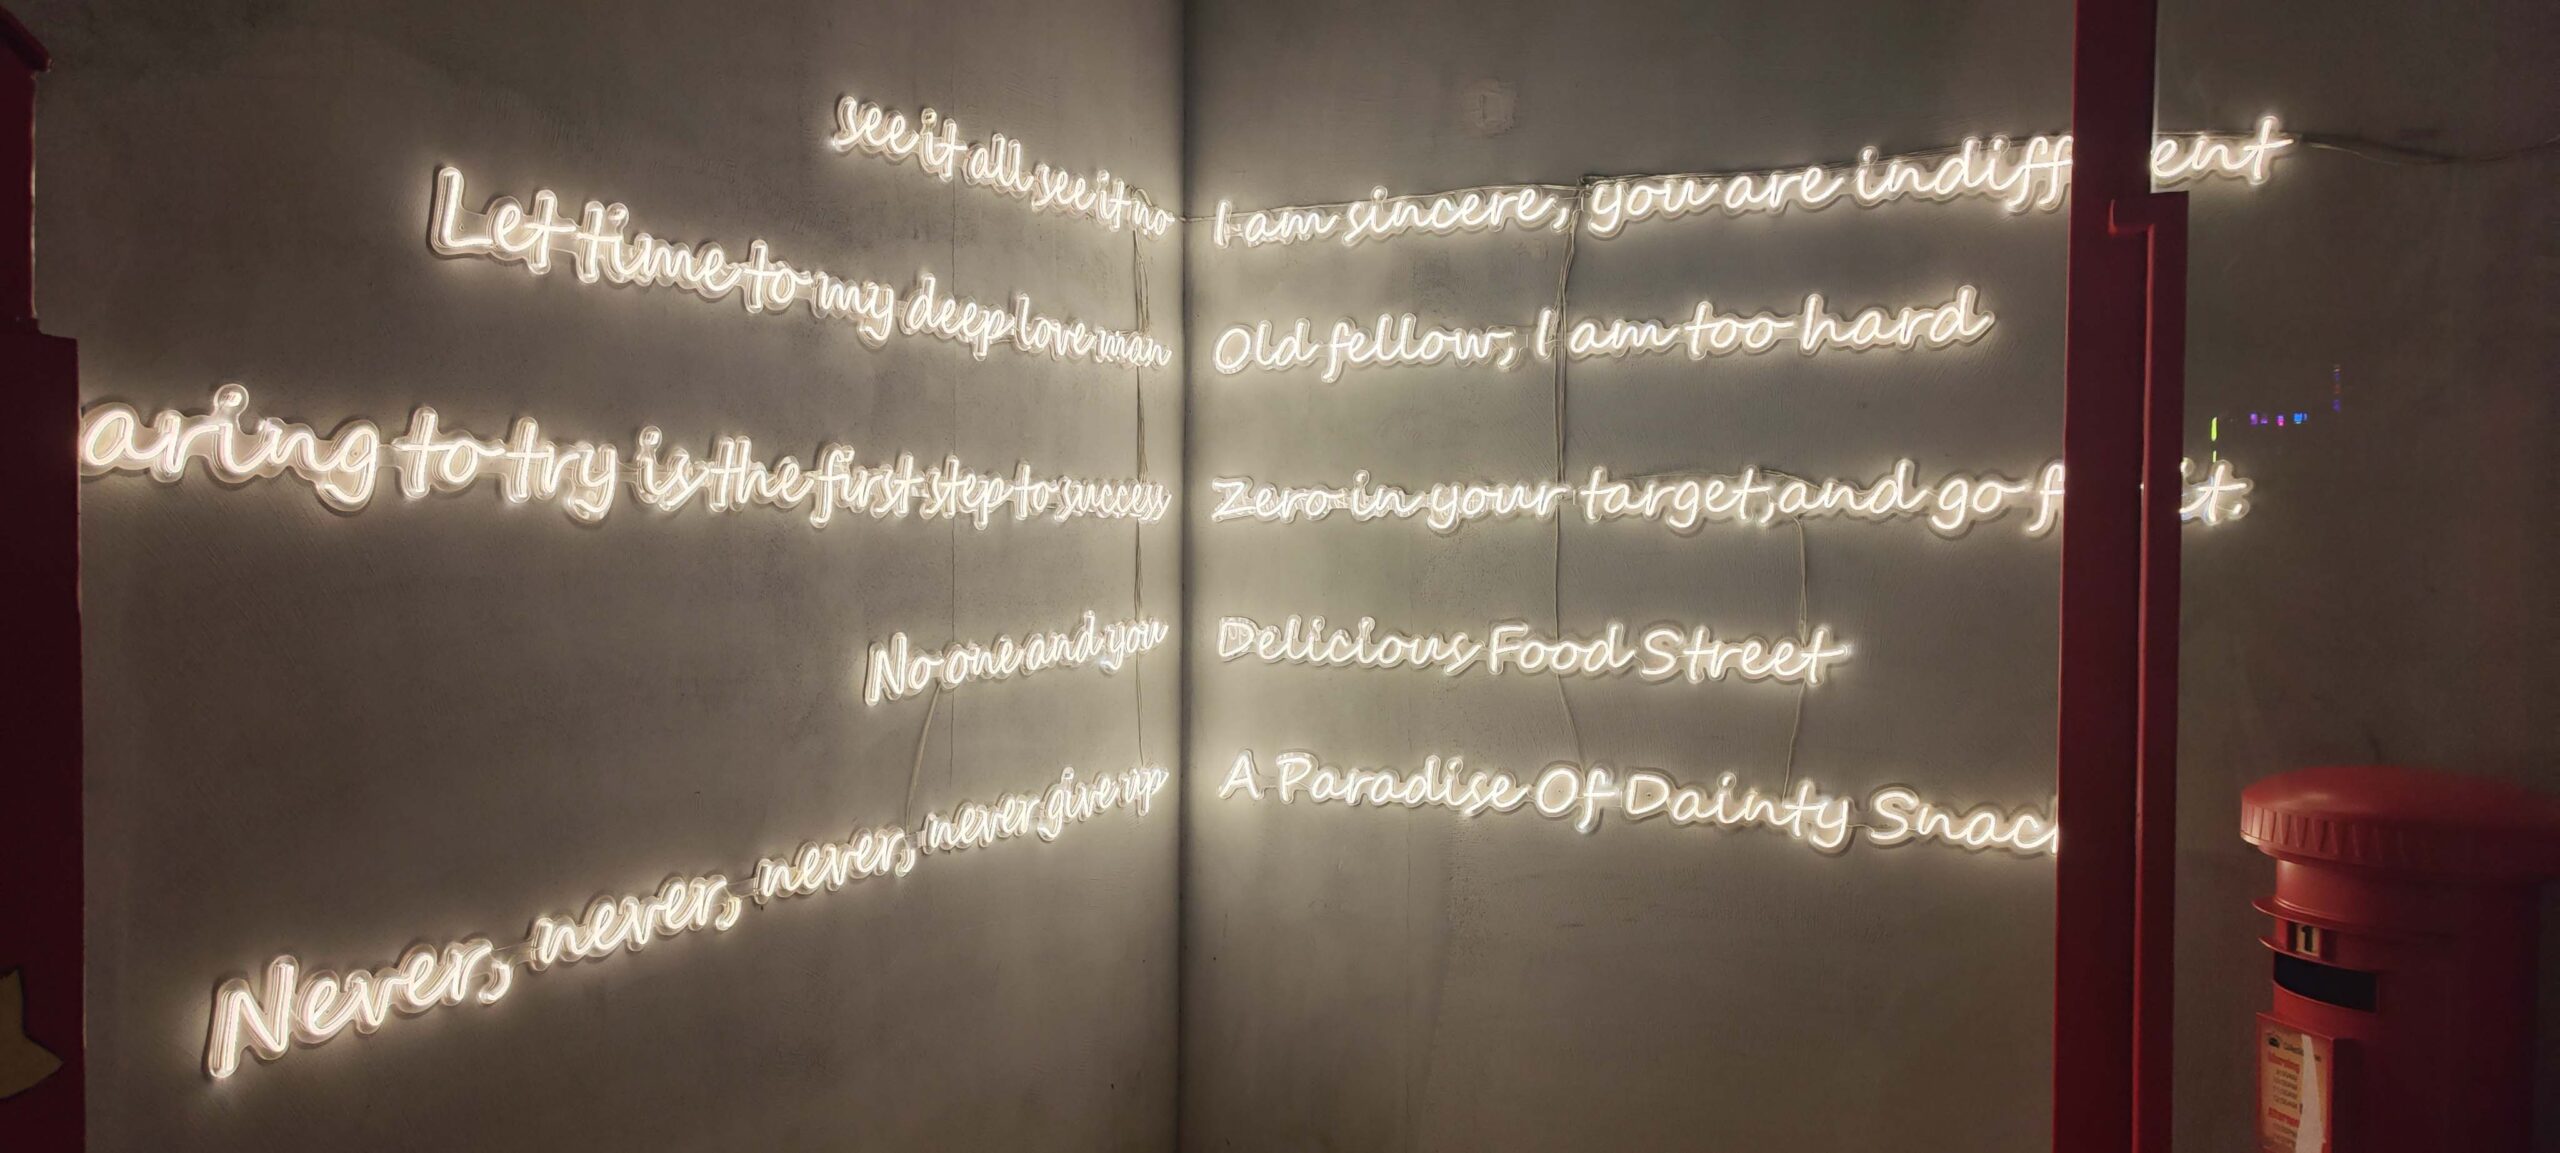 see it all see it no
Let time to my deep love man
aring to try is the first step to success
No one and you
Never, never, never, never give up
I am sincere, you are indiff ent
Old fellow, I am too hard
Zero in your target,and go f it.
Delicious Food Street
A Paradise Of Dainty Snac
11